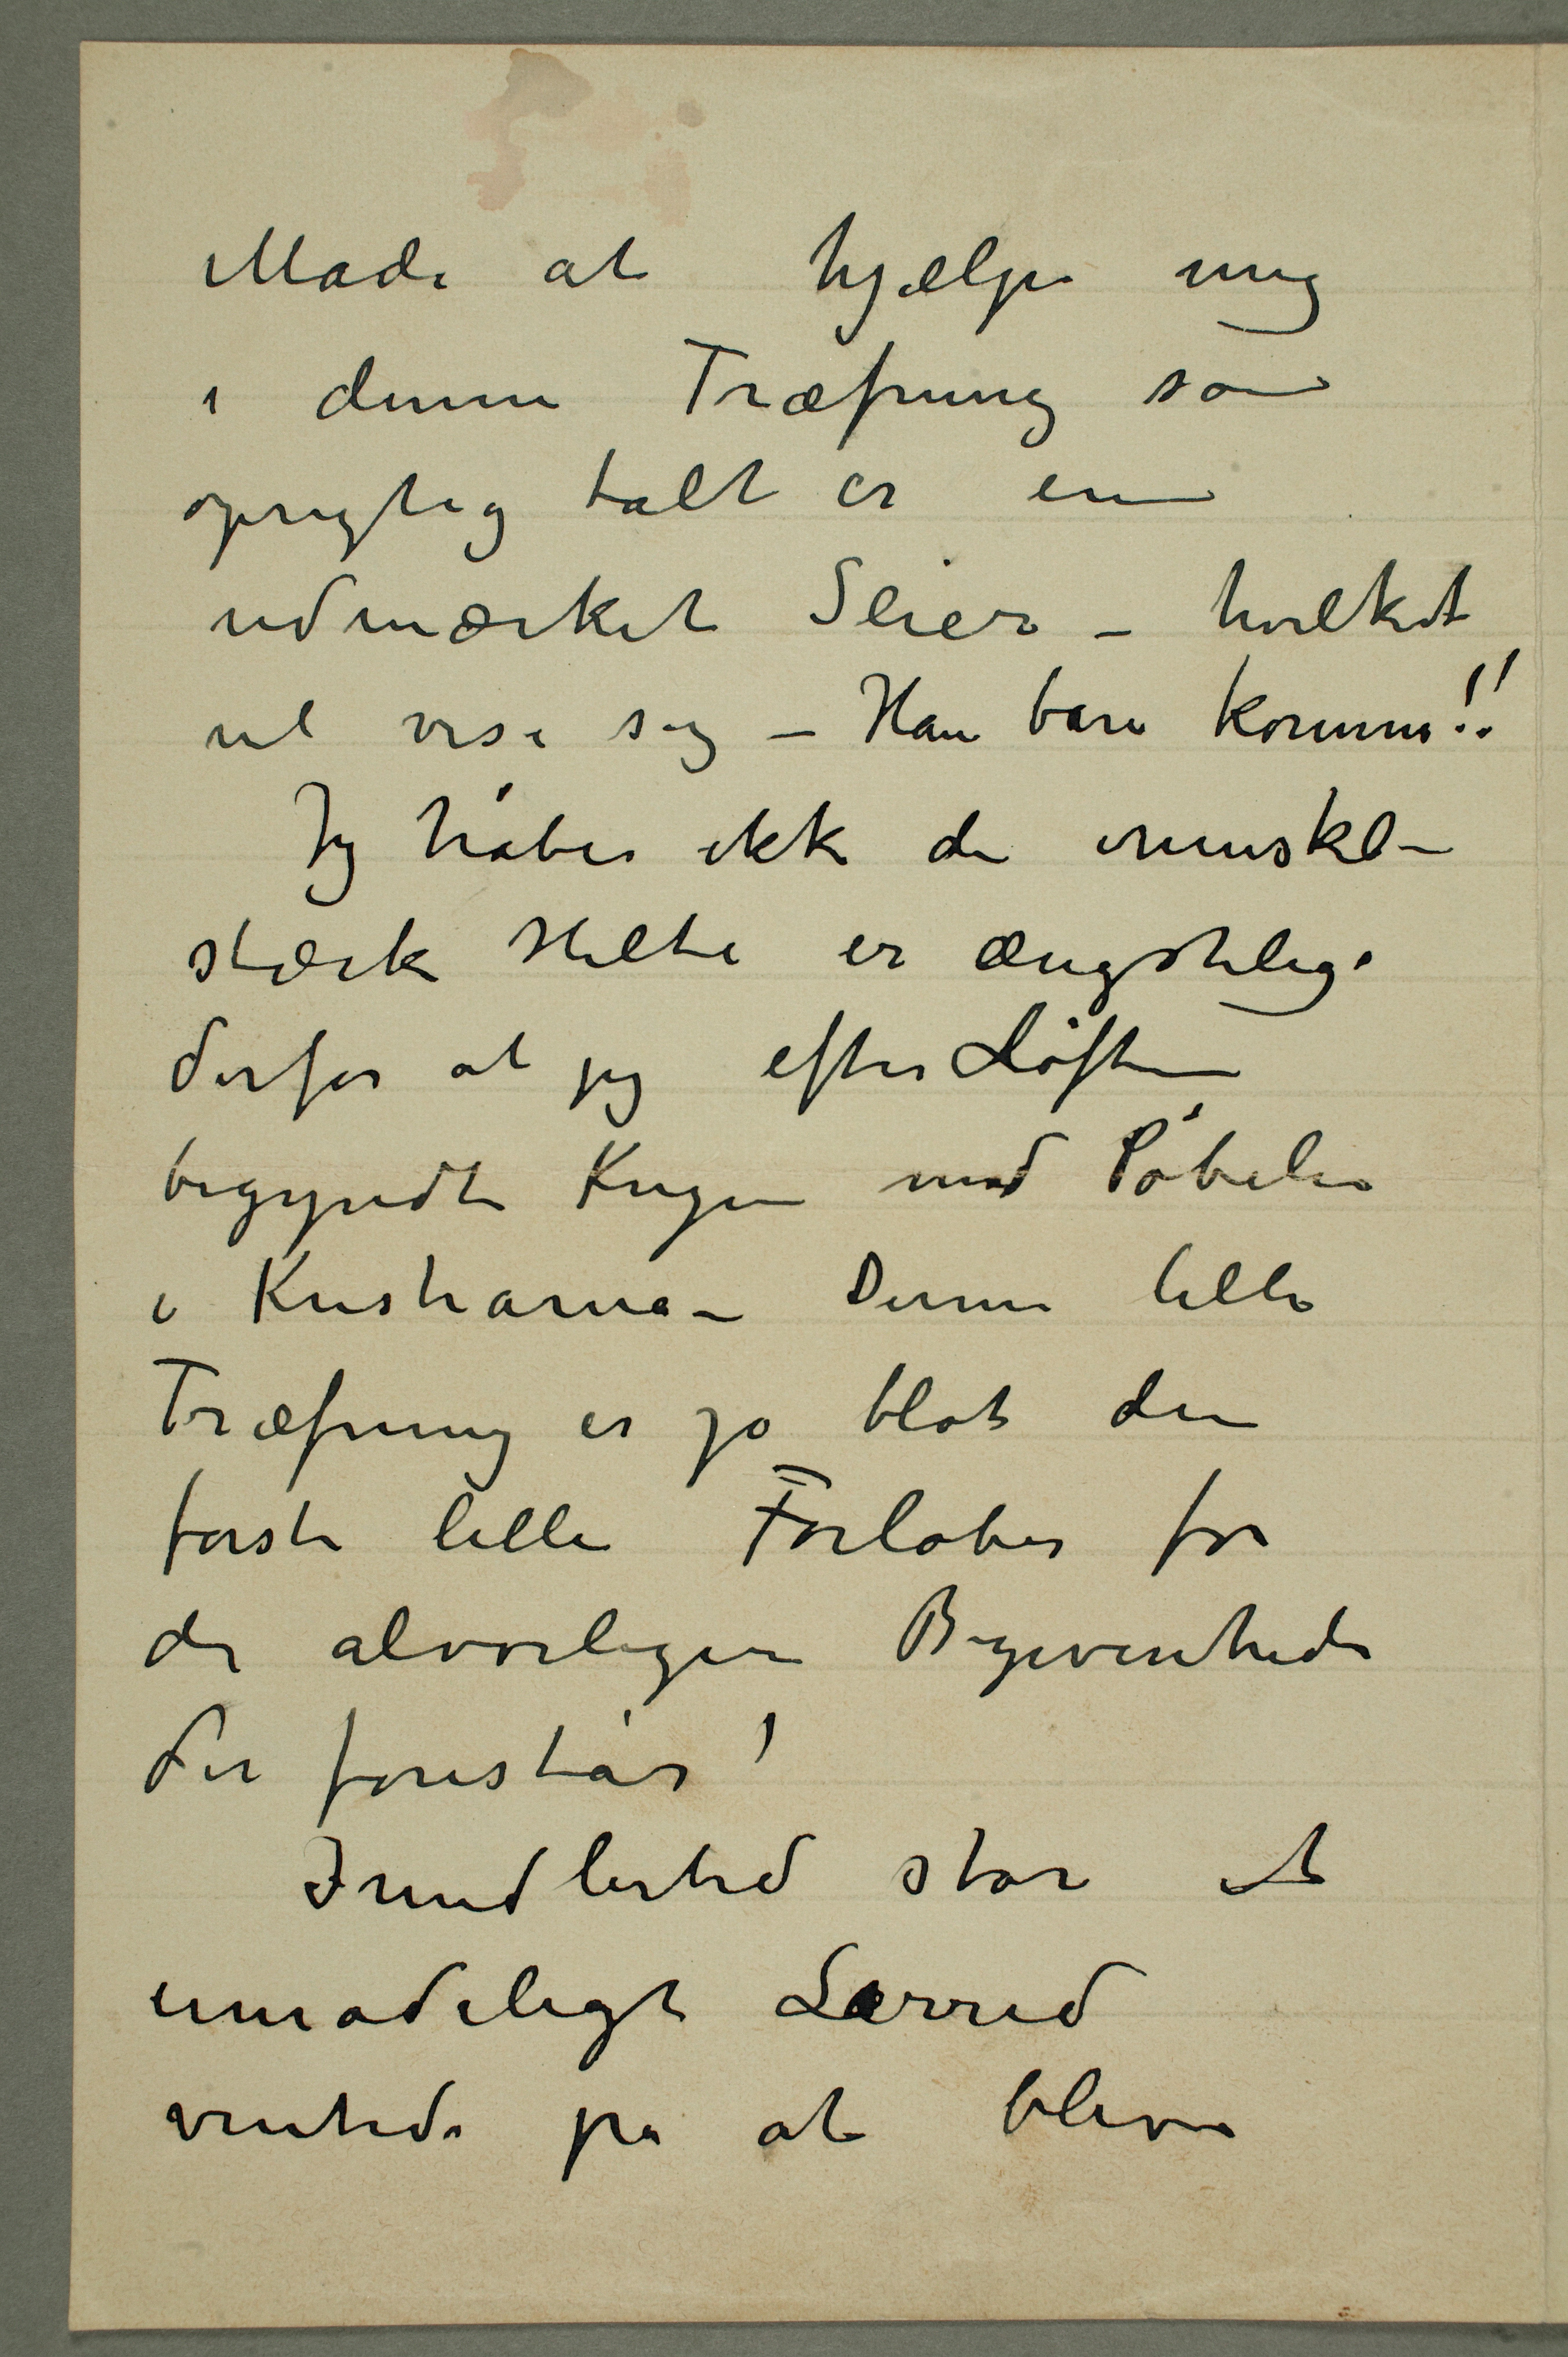 Måde at hjælpe mig
i denne Træfning som
oprigtig talt er en
udmærket Seier – hvilket
vil vise sig – Han bare komme!!
Jeg håber ikke de muskel-
stærke Helte er ængstelige
derfor at jeg efter Løftet
begyndte Krigen med Pøbelen
i Kristiania – Denne lille
Træfning er jo blot den
første lille Forløber for
de alvorligere Begivenheder
der forestår!
Imidlertid står et
umådeligt Lærred
ventende på at blive